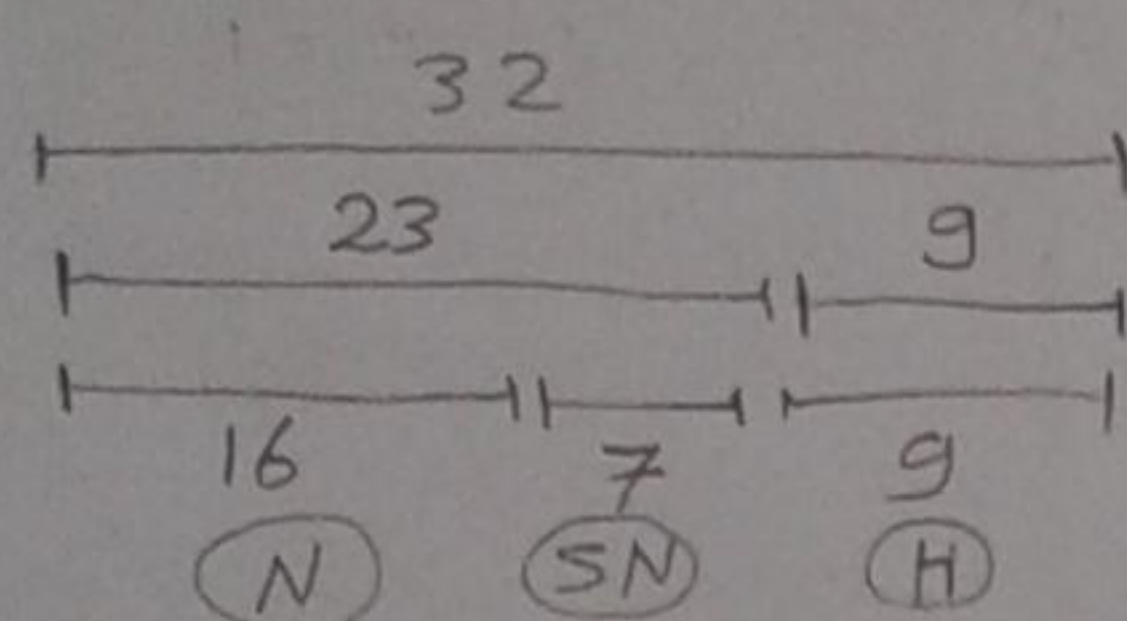 32
23 9
16 7 9
N SN H